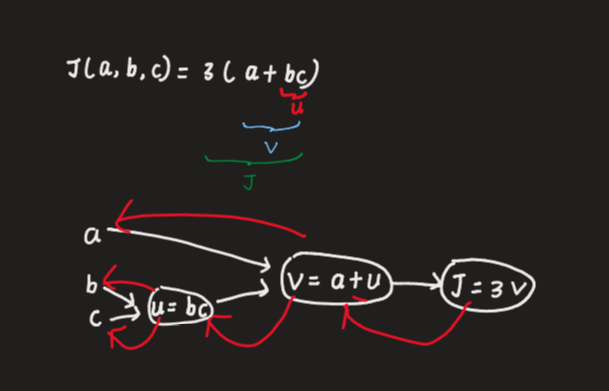 J(a,b,c) = 3(a+bc)
u
v
J
a
b
c
u = bc
v = a+u
J = 3v